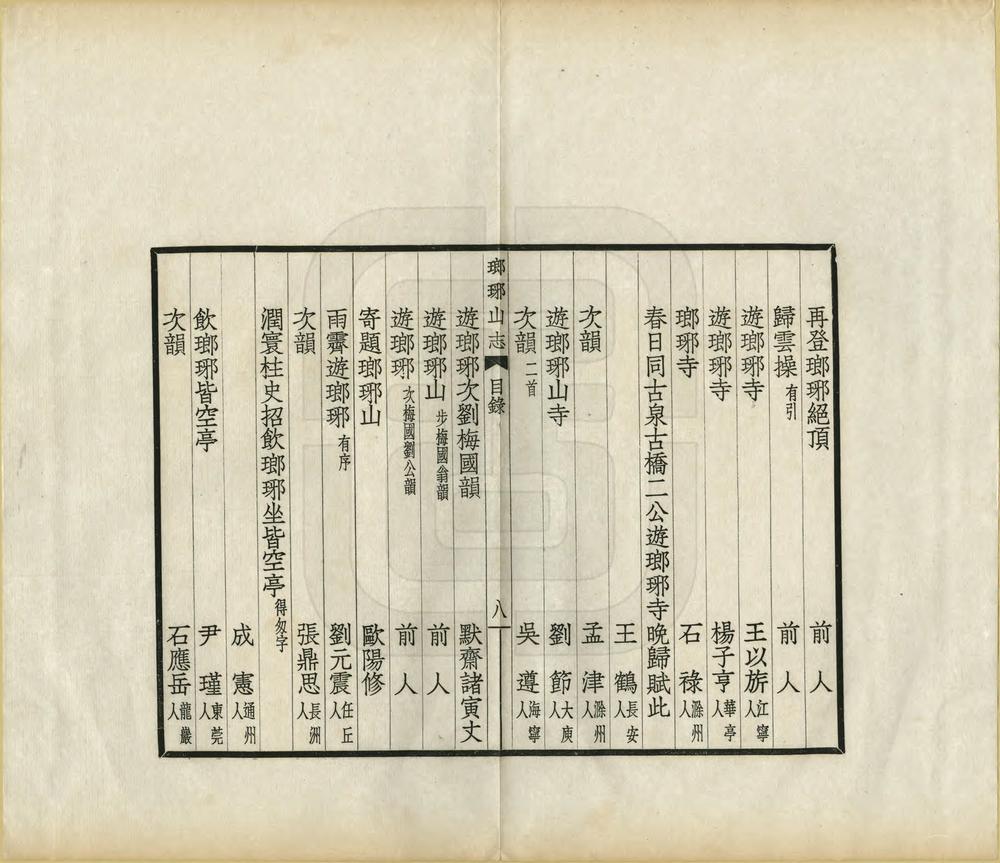 再登瑯琊絕頂 前人
歸雲操 有引 前人
遊瑯琊寺 王以旂 江寧人
遊瑯琊寺 楊子亨 華亭人
瑯琊寺 石祿 滁州人
春日同古泉古橋二公遊瑯琊寺晚歸賦此
王鶴 長安人
次韻 孟津 滁州人
遊瑯琊山寺 劉節 大庾人
次韻 二首 吳遵 海寧人
瑯琊山志 目錄 八
遊瑯琊次劉梅國韻 默齋諸寅丈
遊瑯琊山 步梅國翁韻 前人
遊瑯琊 次梅國劉公韻 前人
寄題瑯琊山 歐陽修
雨霽遊瑯琊 有序 劉元震 任丘人
次韻 張鼎思 長洲人
潤寰柱史招飲瑯琊坐皆空亭 得匆字
成憲 通州人
飲瑯琊皆空亭 尹瑾 東莞人
次韻 石應岳 龍巖人